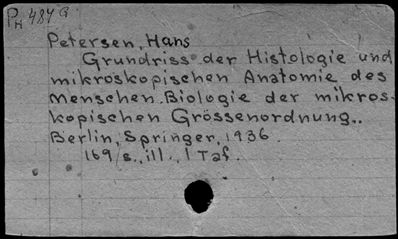 PH 484 G
Petersen, Hans
Grundriss der Histologie und
mikroskopischen Anatomie des
Menschen. Biologie der mikros-
kopischen Grössenordnung..
Berlin, Springer, 1936.
169 s., ill., 1 Taf.